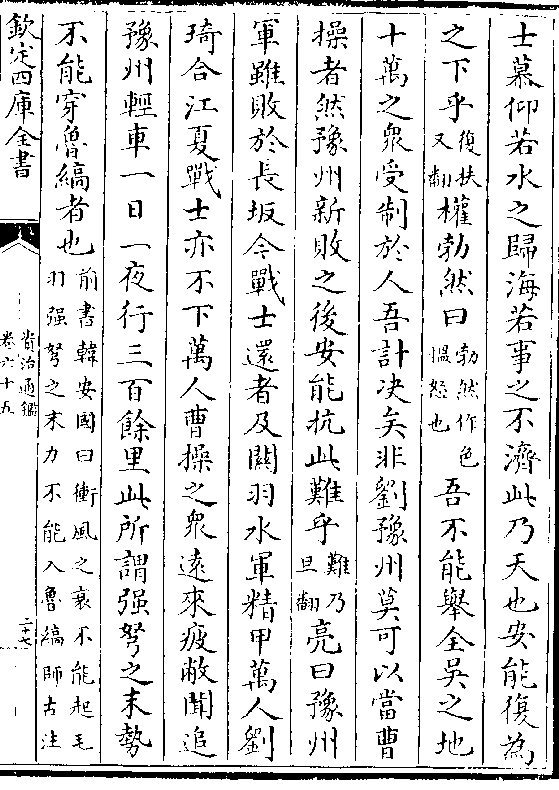 士慕仰若水之歸海若事之不濟此乃天也安能復為
之下乎復扶又翻權勃然曰勃然作色愠怒也吾不能舉全吳之地
十萬之衆受制於人吾計决矣非劉豫州莫可以當曹
操者然豫州新敗之後安能抗此難乎難乃旦翻亮曰豫州
軍雖敗於長坂今戰士還者及關羽水軍精甲萬人劉
琦合江夏戰士亦不下萬人曹操之衆遠來疲敝聞追
豫州輕車一日一夜行三百餘里此所謂强弩之末勢
不能穿魯縞者也前書韓安國曰衝風之衰不能起毛羽强弩之末力不能入魯縞師古注
欽定四庫全書
資治通鑑
卷六十五
二十七